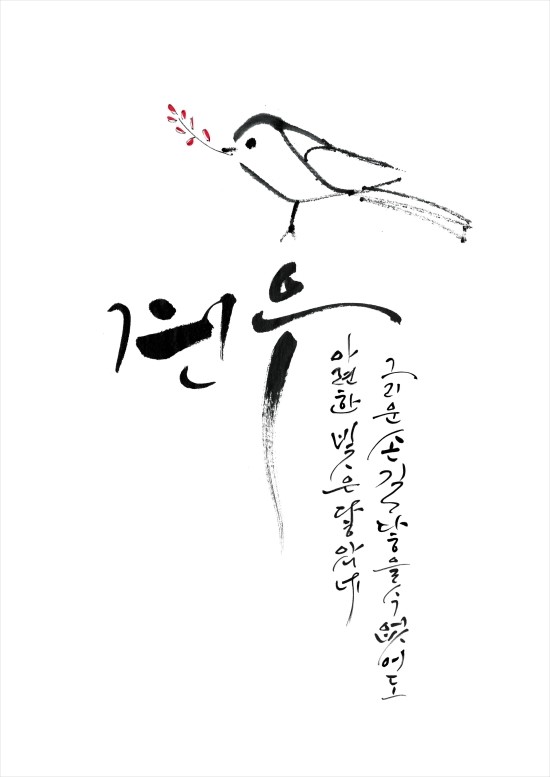 견우
그리운 손길 닿을 수 없어도
아련한 빛은 닿았네